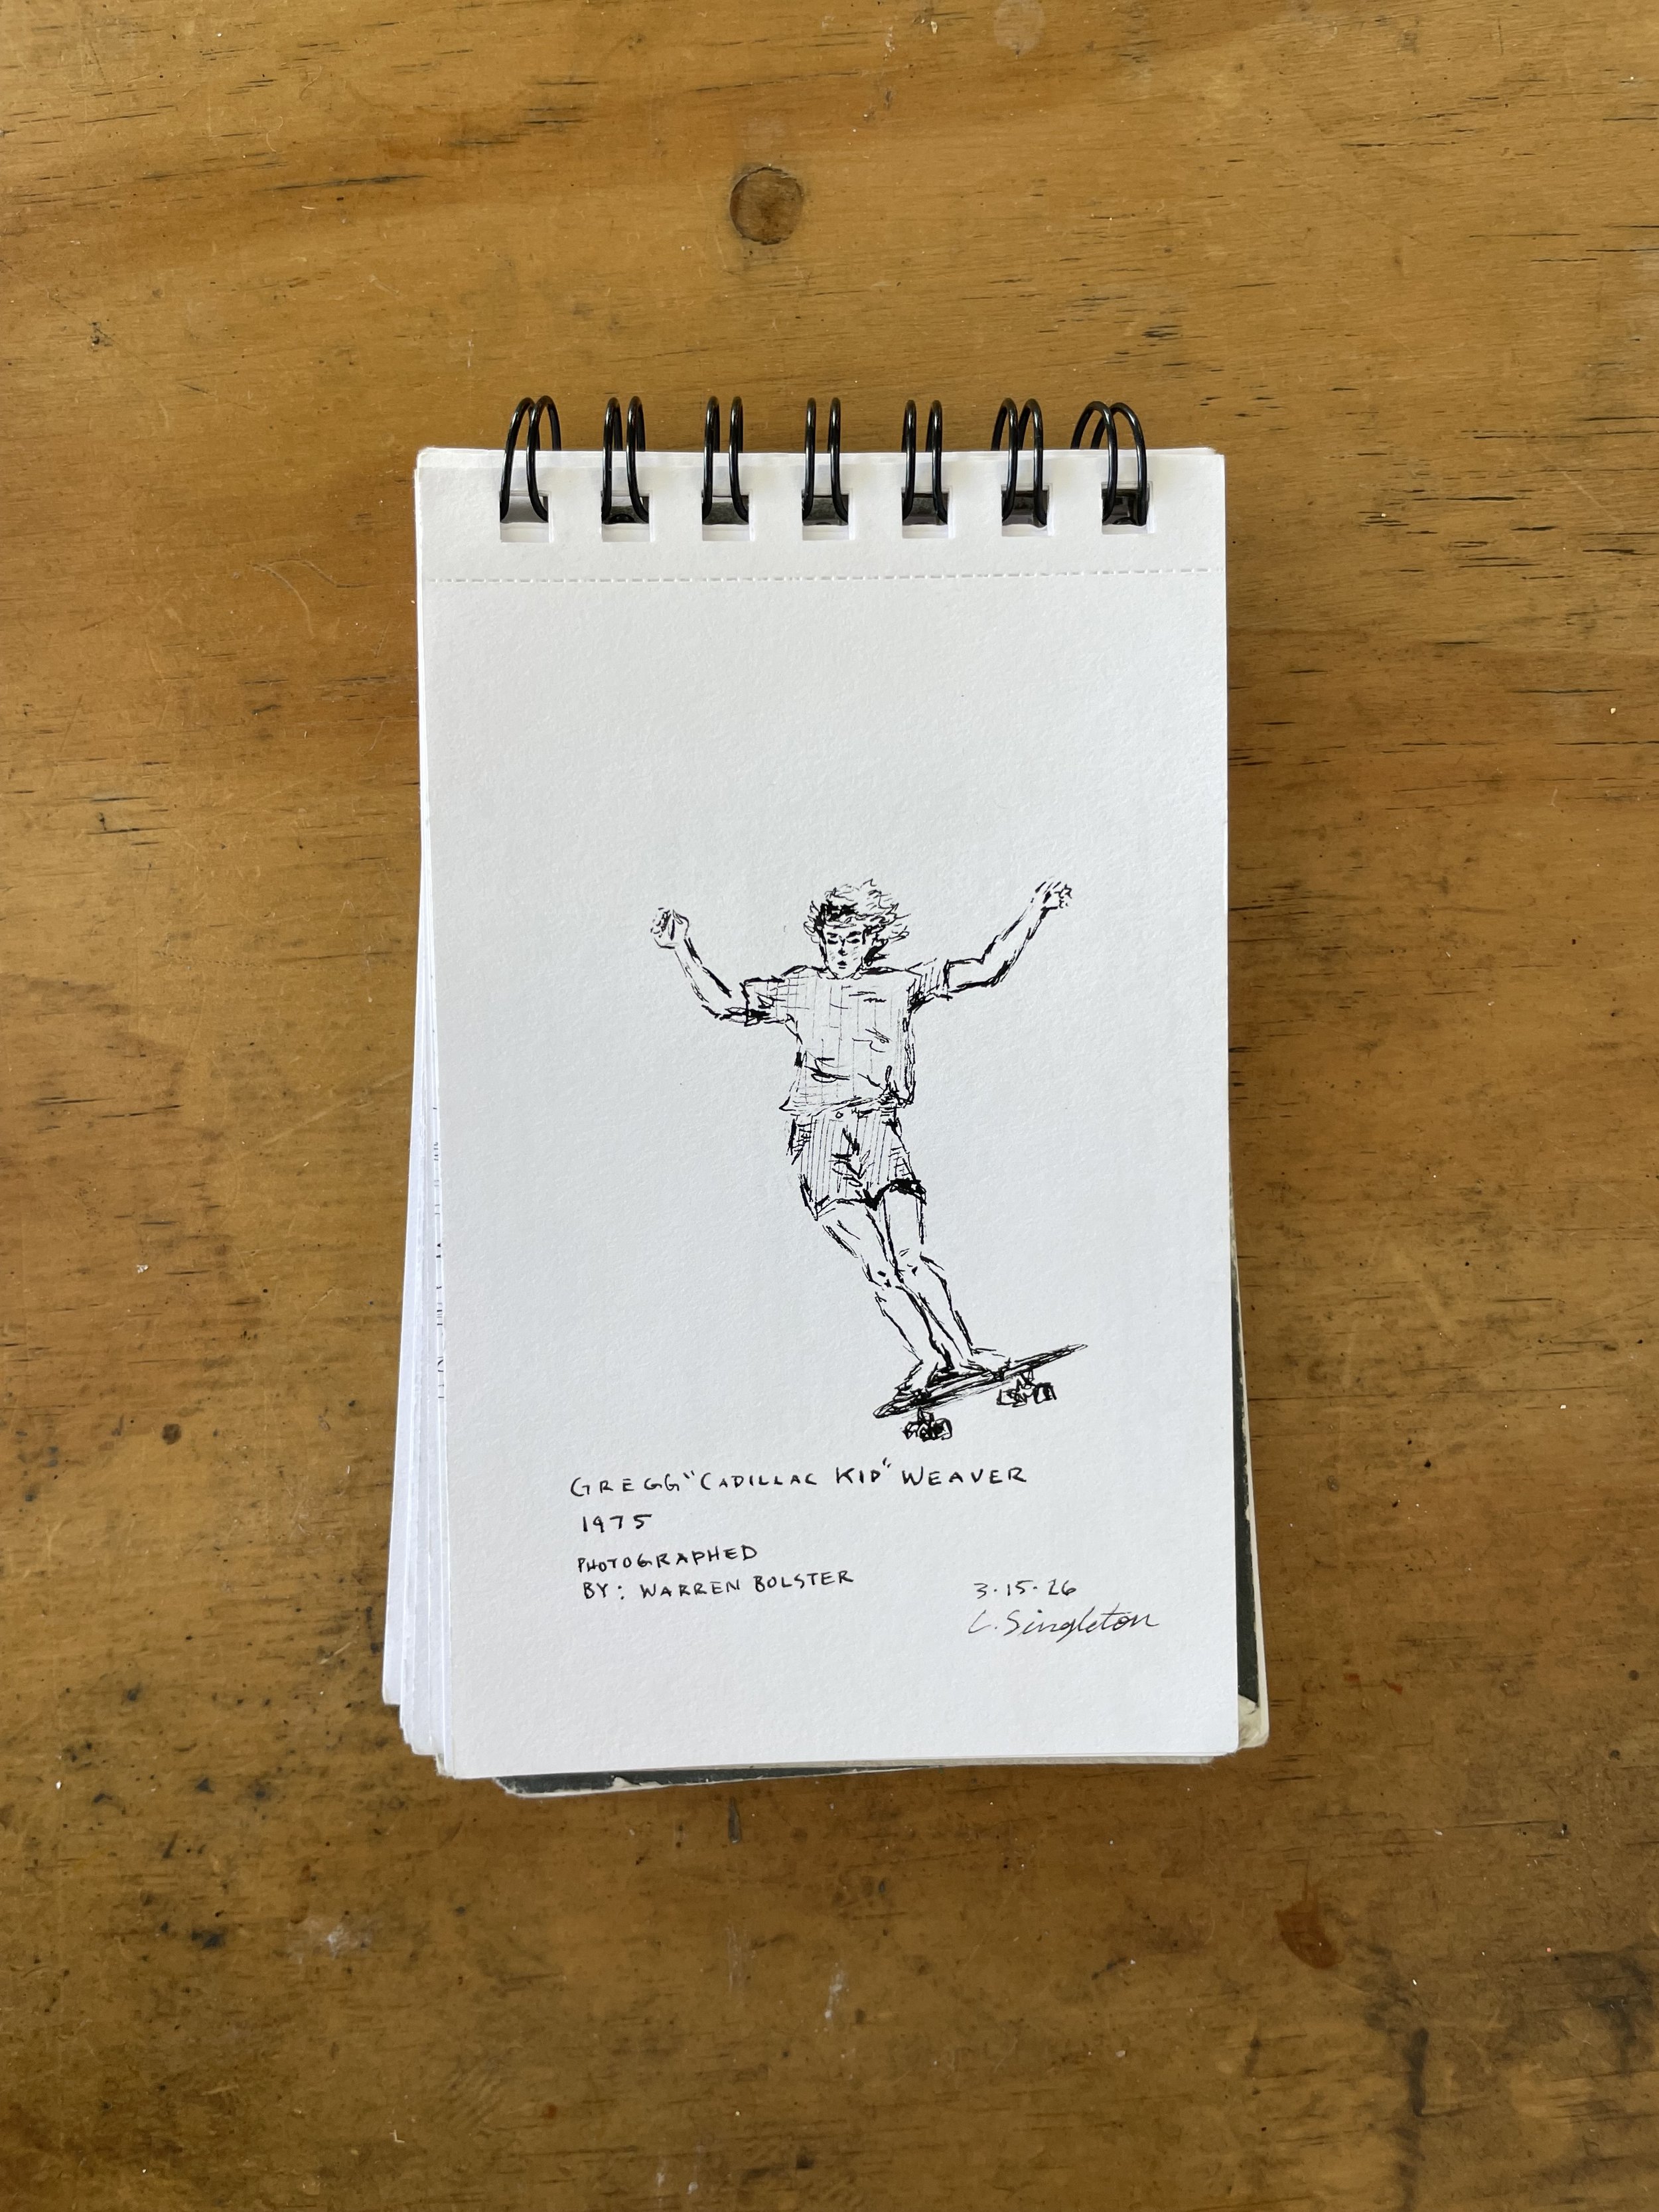 GREGG "CADILLAC KID" WEAVER
1975
PHOTOGRAPHED
BY: WARREN BOLSTER
3.15.26
L. Singleton